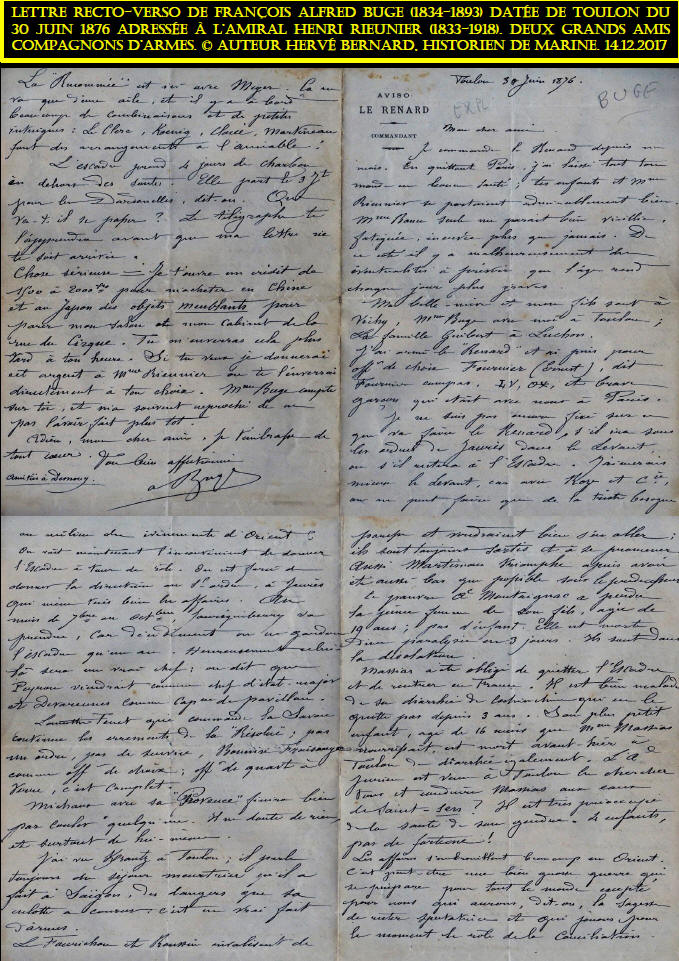 LETTRE RECTO-VERSO DE FRANÇOIS ALFRED BUGE (1834-1893) DATÉE DE TOULON DU
30 JUIN 1876 ADRESSÉE À L'AMIRAL HENRI RIEUNIER (1833-1918). DEUX GRANDS AMIS
COMPAGNONS D'ARMES. © AUTEUR HERVÉ BERNARD, HISTORIEN DE MARINE. 14.12.2017
Toulon 30 Juin 1876.
BUGE
AVISO
LE RENARD
COMMANDANT
Mon cher ami
Je commande le Renard depuis un
mois. En quittant Paris, j'ai laissé tout ton
monde en bonne santé ; tes enfants et Mme
Rieunier se portaient admirablement bien.
Mme seule me parait bien vieillie,
fatiguée, énervée plus que jamais. De
ce côté il y a malheureusement des
éventualités à prévoir que l'âge rend
chaque jour plus graves
Ma belle-mère et mon fils sont à
Vichy, Mme Buge avec moi à Toulon ;
La famille Guibert à Luchon.
J'ai armé le "Renard" et ai pris pour
offr de choix Fournier (Ernest), dit
Fournier compas, et brave
garçon qui était avec nous à Paris.
Je ne suis pas encore fixé sur ce
que va faire le Renard, s'il ira sous
les ordres de Jaurès dans le Levant,
ou s'il restera à l'Escadre. J'aimerais
mieux le Levant, car avec et Cie,
on ne peut faire que de la triste besogne
au milieu des évènements d'Orient ?
On voit maintenant l'inconvénient de donner
l'Escadre à tour de rôle. On est forcé de
donner la direction en ordre, à Jaurès
qui mène très bien les affaires. Au
mois de 7bre ou octbre, Jauréguiberry va
prendre, car décidément on ne gardera
l'escadre qu'un an Heureusement celui-
là sera un vrai chef ; on dit que
Peyron viendrait comme chef d'état major
et Devarennes comme Capne de pavillon.
tenet que commande la Savoie
continue les errements de la Résolue ; pas
un ordre, pas de service, Bonnine Fraissange
comme offr de choix ; offr de quart à
Venue, c'est complet.
Michaux avec sa "Provence" finira bien
par couler quelqu'un. Il se doute de rien
et surtout de lui-même.
J'ai vu Krantz à Toulon ; il parle
toujours du séjour meurtrier qu'il a
fait à Saïgon, des dangers que sa
culotte a courus : c'est un vrai fait
d'armes.
L. Fourichon et Roussin rivalisent de
paresse et voudraient bien s'en aller ;
ils sont toujours sortis et à se promener
Aussi Martineau triomphe après avoir
été aussi bas que possible sous le prédécesseur
Le pauvre Al Montaignac a perdu
la jeune femme de son fils, agée de
19 ans ; pas d'enfant. Elle est morte
d'une paralysie en 3 jours. Ils sont dans
la désolation
Massias a été obligé de quitter l'Escadre
et de rentrer en France. Il est bien malade
de sa diarrhée de Cochinchine qui ne le
quitte pas depuis 3 ans. Son plus petit
enfant, agé de 16 mois que Mme Massias
nourrissait, est mort avant-hier à
Toulon de diarrhée également. L'Al
Jurien est venu à Toulon le chercher
tous et conduire Massias aux eaux
de Saint- ? Il est très préoccupé
de la santé de son gendre. 4 enfants,
pas de fortune !
Les affaires s'embrouillent beaucoup en Orient.
C'est peut-être une bien grosse guerre qui
se prépare pour tout le monde excepté
pour nous qui aurons, dit-on, la sagesse
de rester spectatrice et qui jouons pour
le moment le rôle de la conciliation.
La "Renommée" est ici avec Meyer. Ça ne
va que d'une aile, et il y a à bord
beaucoup de combinaisons et de petites
intrigues : Le Clerc, Koenig, Clouè, Martineau
font des arrangements à l'aimable !
L'escadre prend 4 jours de charbon
en dehors des soutes. Elle part le 3 Jt
pour les Dardanelles, dit-on. Que
va-t-il se passer ? Le télégraphe te
l'apprendra avant que ma lettre ne
te soit arrivée.
Chose sérieuse = Je t'ouvre un crédit de
1500 à 2000frs pour m'acheter en Chine
et au Japon des objets meublants pour
parer mon salon et mon cabinet de la
rue du Cirque. Tu m'enverras cela plus
tard à ton heure. Si tu veux je donnerai
cet argent à Mme Rieunier ou te l'enverrai
directement à ton choix. Mme Buge compte
sur toi, et m'a souvent reproché de ne
pas l'avoir fait plus tôt.
Adieu, mon cher ami. Je t'embrasse de
tout cœur. Ton bien affectionné
Amitiés à
a Buge